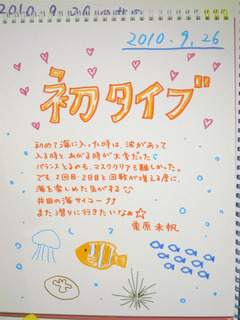 2010.9.26
2010.9.26
初ダイブ
初めて海に入った時は、波があって
入る時と、あがる時が大変だった
バランスとるのも、マスククリアも難しかった。
でも、2回目、2日目と回数が増える度に、
海を楽しめた気がする
井田の海サイコー!!
また潜りに行きたいなぁ☆
栗原未帆